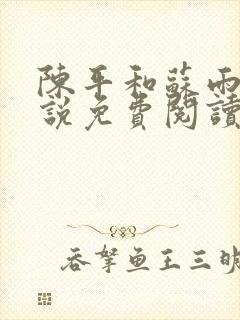 陳平和蘇雨
說免費閱讀
吞拏鱼王三